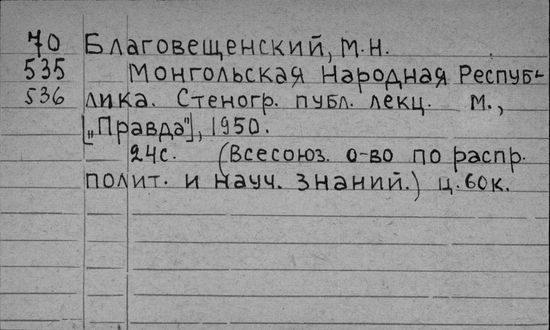 70 Благовещенский, М.Н.
535 Монгольская Народная Респуб-
536 лика. Стеногр. публ. лекц. М.,
[„Правда"], 1950.
24с. (Всесоюз. о-во по распр.
полит. и науч. знаний.) ц. 60к.